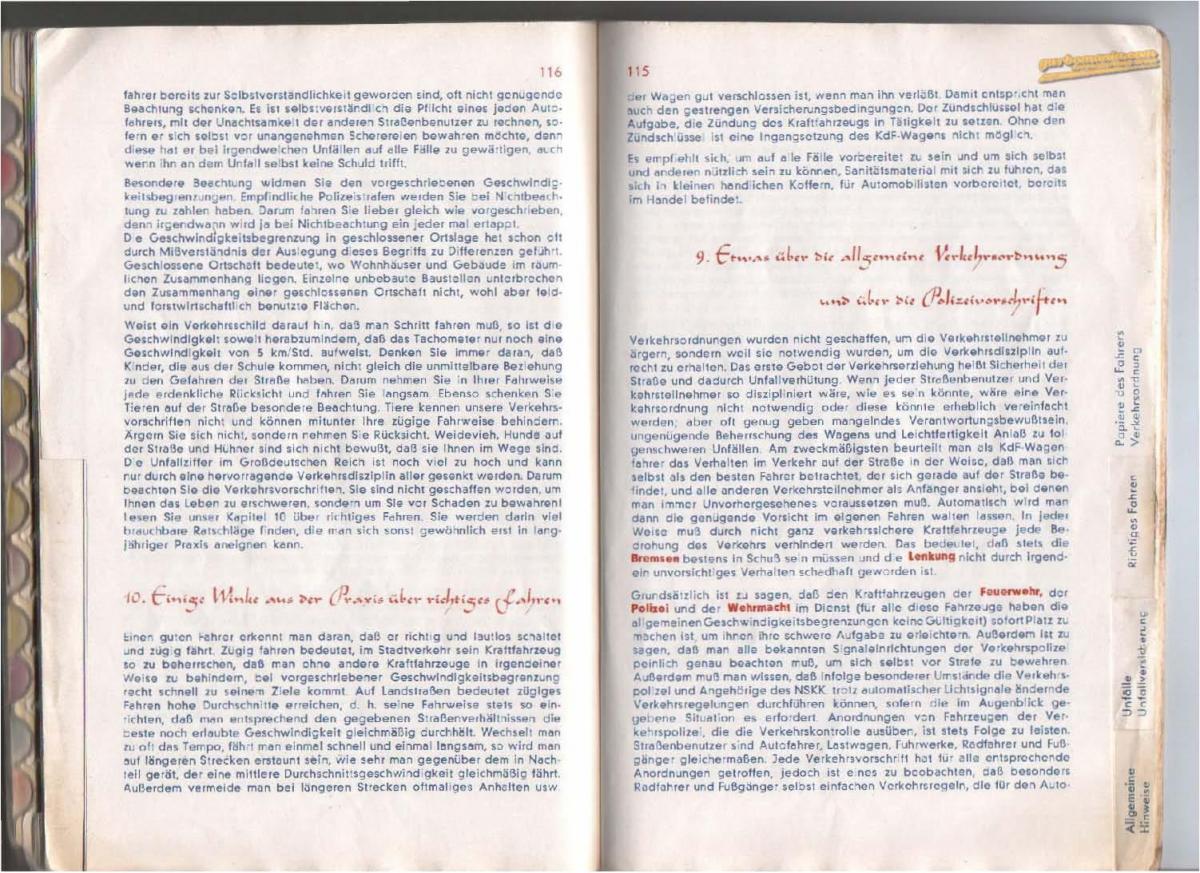 116
fahrer bereits zur Selbstverständlichkeit geworden sind, oft nicht genügende
Beachtung schenken. Es ist selbstverständlich die Pflicht eines jeden Auto-
fahrers, mit der Unachtsamkeit der anderen Straßenbenutzer zu rechnen, so-
fern er sich selbst vor unangenehmen Scherereien bewahren möchte, denn
diese hat er bei irgendwelchen Unfällen auf alle Fälle zu gewärtigen, auch
wenn ihn an dem Unfall selbst keine Schuld trifft.
Besondere Beachtung widmen Sie den vorgeschriebenen Geschwindig-
keitsbegrenzungen. Empfindliche Polizeistrafen werden Sie bei Nichtbeach-
tung zu zahlen haben. Darum fahren Sie lieber gleich wie vorgeschrieben,
denn irgendwann wird ja bei Nichtbeachtung ein jeder mal ertappt.
Die Geschwindigkeitsbegrenzung in geschlossener Ortslage hat schon oft
durch Mißverständnis der Auslegung dieses Begriffs zu Differenzen geführt.
Geschlossene Ortschaft bedeutet, wo Wohnhäuser und Gebäude im räum-
lichen Zusammenhang liegen. Einzelne unbebaute Baustellen unterbrechen
den Zusammenhang einer geschlossenen Ortschaft nicht, wohl aber feld-
und forstwirtschaftlich benutzte Flächen.
Weist ein Verkehrsschild darauf hin, daß man Schritt fahren muß, so ist die
Geschwindigkeit soweit herabzumindern, daß das Tachometer nur noch eine
Geschwindigkeit von 5 km/Std. aufweist. Denken Sie immer daran, daß
Kinder, die aus der Schule kommen, nicht gleich die unmittelbare Beziehung
zu den Gefahren der Straße haben. Darum nehmen Sie in Ihrer Fahrweise
jede erdenkliche Rücksicht und fahren Sie langsam. Ebenso schenken Sie
Tieren auf der Straße besondere Beachtung. Tiere kennen unsere Verkehrs-
vorschriften nicht und können mitunter Ihre zügige Fahrweise behindern.
Ärgern Sie sich nicht, sondern nehmen Sie Rücksicht. Weidevieh, Hunde auf
der Straße und Hühner sind sich nicht bewußt, daß sie Ihnen im Wege sind.
Die Unfallziffer im Großdeutschen Reich ist noch viel zu hoch und kann
nur durch eine hervorragende Verkehrsdisziplin aller gesenkt werden. Darum
beachten Sie die Verkehrsvorschriften. Sie sind nicht geschaffen worden, um
Ihnen das Leben zu erschweren, sondern um Sie vor Schaden zu bewahren!
Lesen Sie unser Kapitel 10 über richtiges Fahren. Sie werden darin viel
brauchbare Ratschläge finden, die man sich sonst gewöhnlich erst in lang-
jähriger Praxis aneignen kann.
10. Einige Winke aus der Praxis über richtiges Fahren
Einen guten Fahrer erkennt man daran, daß er richtig und lautlos schaltet
und zügig fährt. Zügig fahren bedeutet, im Stadtverkehr sein Kraftfahrzeug
so zu beherrschen, daß man ohne andere Kraftfahrzeuge in irgendeiner
Weise zu behindern, bei vorgeschriebener Geschwindigkeitsbegrenzung
recht schnell zu seinem Ziele kommt. Auf Landstraßen bedeutet zügiges
Fahren hohe Durchschnitte erreichen, d. h. seine Fahrweise stets so ein-
richten, daß man entsprechend den gegebenen Straßenverhältnissen die
beste noch erlaubte Geschwindigkeit gleichmäßig durchhält. Wechselt man
zu oft das Tempo, fährt man einmal schnell und einmal langsam, so wird man
auf längeren Strecken erstaunt sein, wie sehr man gegenüber dem in Nach-
teil gerät, der eine mittlere Durchschnittsgeschwindigkeit gleichmäßig fährt.
Außerdem vermeide man bei längeren Strecken oftmaliges Anhalten usw.
115
der Wagen gut verschlossen ist, wenn man ihn verläßt. Damit entspricht man
auch den gestrengen Versicherungsbedingungen. Der Zündschlüssel hat die
Aufgabe, die Zündung des Kraftfahrzeugs in Tätigkeit zu setzen. Ohne den
Zündschlüssel ist eine Ingangsetzung des KdF-Wagens nicht möglich.
Es empfiehlt sich, um auf alle Fälle vorbereitet zu sein und um sich selbst
und anderen nützlich sein zu können, Sanitätsmaterial mit sich zu führen, das
sich in kleinen handlichen Koffern, für Automobilisten vorbereitet, bereits
im Handel befindet.
9. Etwas über die allgemeine Verkehrsordnung
und über die Polizeivorschriften
Verkehrsordnungen wurden nicht geschaffen, um die Verkehrsteilnehmer zu
ärgern, sondern weil sie notwendig wurden, um die Verkehrsdisziplin auf-
recht zu erhalten. Das erste Gebot der Verkehrserziehung heißt Sicherheit der
Straße und dadurch Unfallverhütung. Wenn jeder Straßenbenutzer und Ver-
kehrsteilnehmer so diszipliniert wäre, wie es sein könnte, wäre eine Ver-
kehrsordnung nicht notwendig oder diese könnte erheblich vereinfacht
werden; aber oft genug geben mangelndes Verantwortungsbewußtsein,
ungenügende Beherrschung des Wagens und Leichtfertigkeit Anlaß zu fol-
genschweren Unfällen. Am zweckmäßigsten beurteilt man als KdF-Wagen-
fahrer das Verhalten im Verkehr auf der Straße in der Weise, daß man sich
selbst als den besten Fahrer betrachtet, der sich gerade auf der Straße be-
findet, und alle anderen Verkehrsteilnehmer als Anfänger ansieht, bei denen
man immer Unvorhergesehenes voraussetzen muß. Automatisch wird man
dann die genügende Vorsicht im eigenen Fahren walten lassen. In jeder
Weise muß durch nicht ganz verkehrssichere Kraftfahrzeuge jede Be-
drohung des Verkehrs verhindert werden. Das bedeutet, daß stets die
Bremsen bestens in Schuß sein müssen und die Lenkung nicht durch irgend-
ein unvorsichtiges Verhalten schadhaft geworden ist.
Grundsätzlich ist zu sagen, daß den Kraftfahrzeugen der Feuerwehr, der
Polizei und der Wehrmacht im Dienst (für alle diese Fahrzeuge haben die
allgemeinen Geschwindigkeitsbegrenzungen keine Gültigkeit) sofort Platz zu
machen ist, um ihnen ihre schwere Aufgabe zu erleichtern. Außerdem ist zu
sagen, daß man alle bekannten Signaleinrichtungen der Verkehrspolizei
peinlich genau beachten muß, um sich selbst vor Strafe zu bewahren.
Außerdem muß man wissen, daß infolge besonderer Umstände die Verkehrs-
polizei und Angehörige des NSKK trotz automatischer Lichtsignale ändernde
Verkehrsregelungen durchführen können, sofern die im Augenblick ge-
gebene Situation es erfordert. Anordnungen von Fahrzeugen der Ver-
kehrspolizei, die die Verkehrskontrolle ausüben, ist stets Folge zu leisten.
Straßenbenutzer sind Autofahrer, Lastwagen, Fuhrwerke, Radfahrer und Fuß-
gänger gleichermaßen. Jede Verkehrsvorschrift hat für alle entsprechende
Anordnungen getroffen, jedoch ist eines zu beobachten, daß besonders
Radfahrer und Fußgänger selbst einfachen Verkehrsregeln, die für den Auto-
Papiere des Fahrers
Verkehrsordnung
Richtiges Fahren
Unfälle
Unfallversicherung
Allgemeine
Hinweise